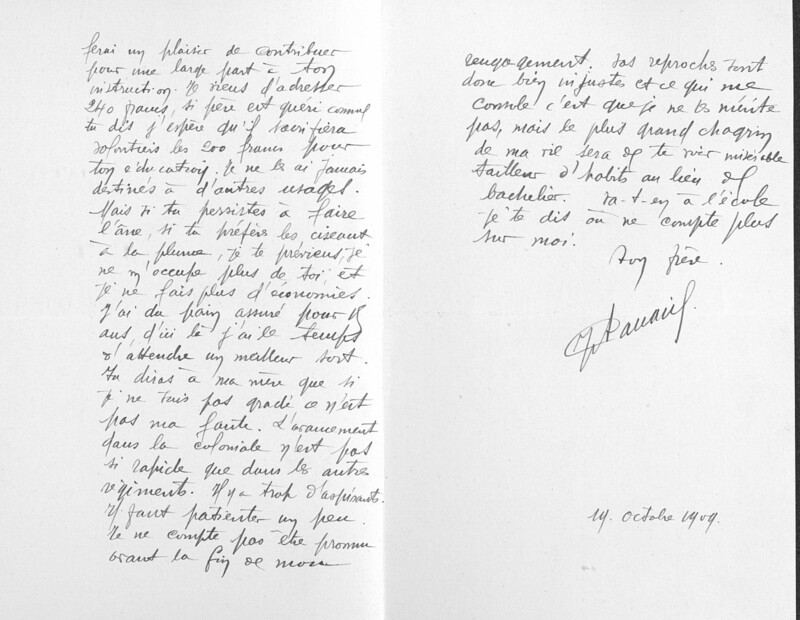 ferai un plaisir de contribuer
pour une large part à ton
instruction. Je viens d'adresser
240 francs, si père est guéri comme
tu dis j'espère qu'il sacrifiera
volontiers les 200 francs pour
ton éducation. Je ne les ai jamais
destinés à d'autres usages.
Mais si tu persistes à faire
l'âne, si tu préfères les ciseaux
à la plume, je te préviens, je
ne m'occupe plus de toi, et
je ne fais plus d'économies.
J'ai du pain assuré pour
ans, d'ici là j'ai le temps
d'attendre un meilleur sort.
Tu diras à ma mère que si
je ne suis pas gradé ce n'est
pas ma faute. L'avancement
dans la coloniale n'est pas
si rapide que dans les autres
régiments. Il y a trop d'aspirants.
Il faut patienter un peu.
Je ne compte pas être promu
avant la fin de mon
rengagement. Tes reproches sont
donc bien injustes et ce qui me
console c'est que je ne les mérite
pas, mais le plus grand chagrin
de ma vie sera de te voir misérable
tailleur d'habits au lieu de
bachelier. Va-t-en à l'école
je te dis ou ne compte plus
sur moi.
Ton frère.
19. Octobre 1909.